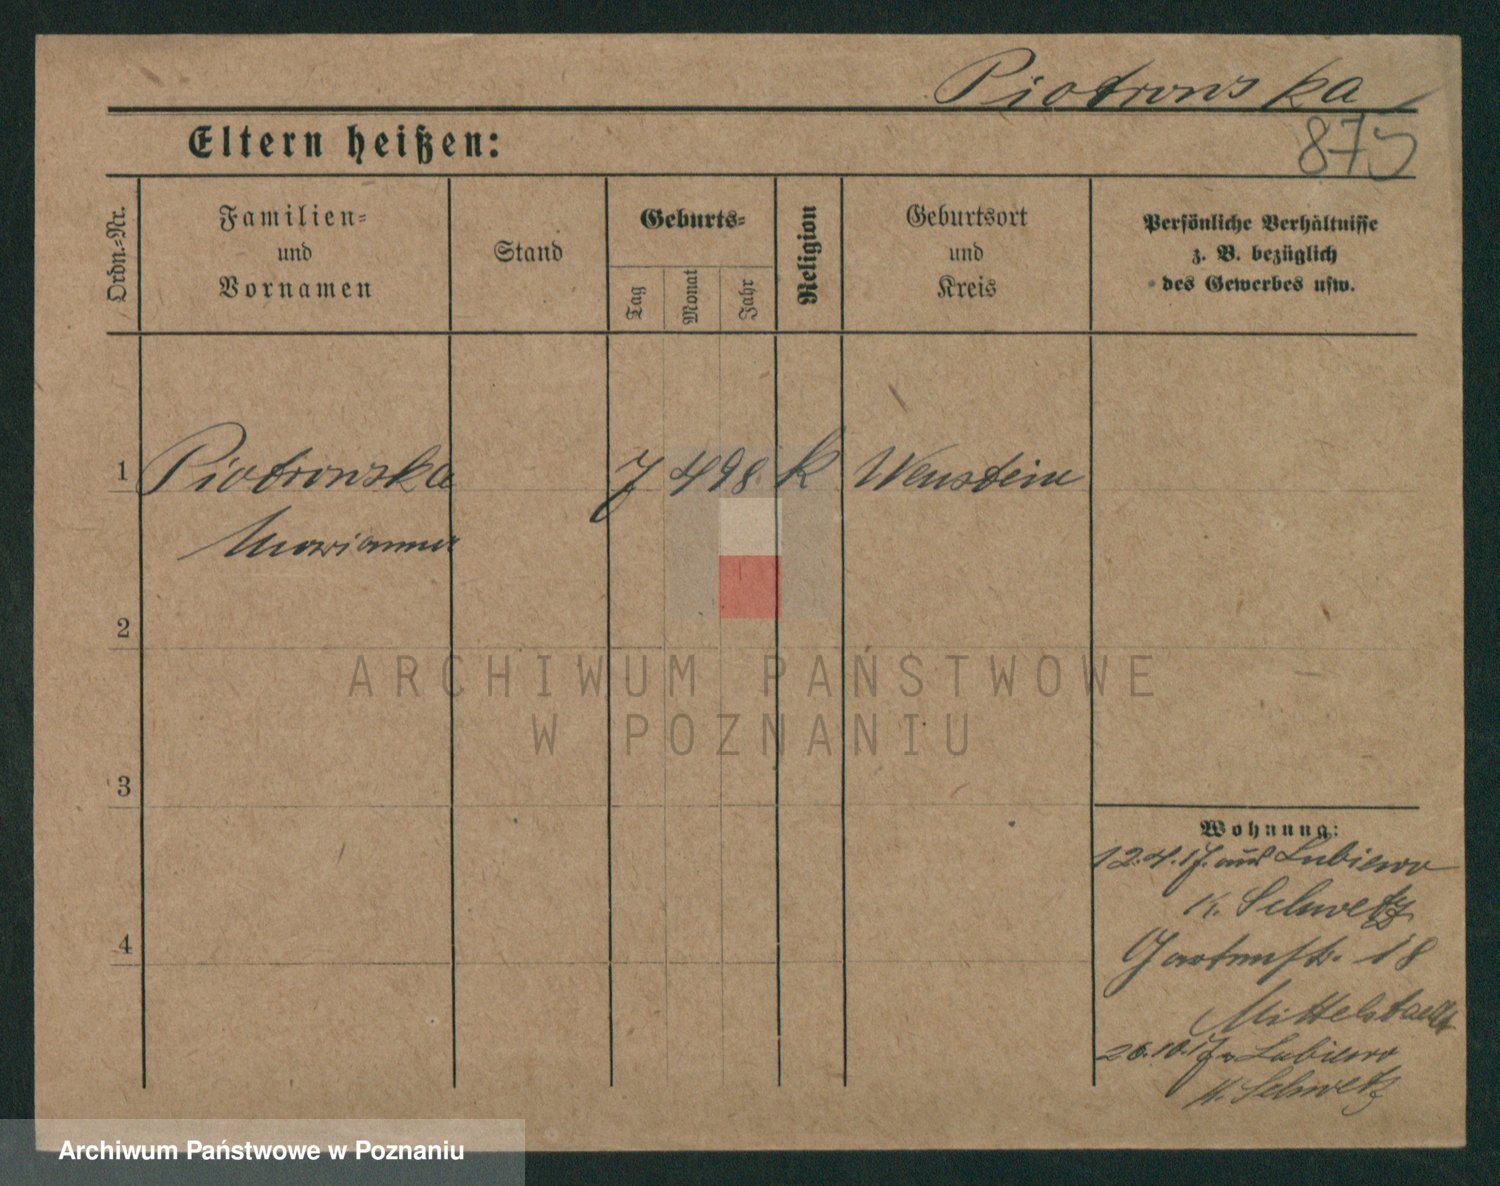 Piotrowska
875
Eltern heißen:
Ordn.-Nr.
Familien- und Vornamen
Stand
Geburts-
Tag
Monat
Jahr
Religion
Geburtsort und Kreis
Persönliche Verhältnisse z. B. bezüglich des Gewerbes usw.
1 Piotrowska 7 4 98 k
Marianna
2
ARCHIWUM PAŃSTWOWE
W POZNANIU
3
Wohnung:
12.4.17. aus Lubiewo
K. Schwetz
Gartenstr. 18
4
Mittelstaedt
26.10.17 n Lubiewo
K. Schwetz
Archiwum Państwowe w Poznaniu